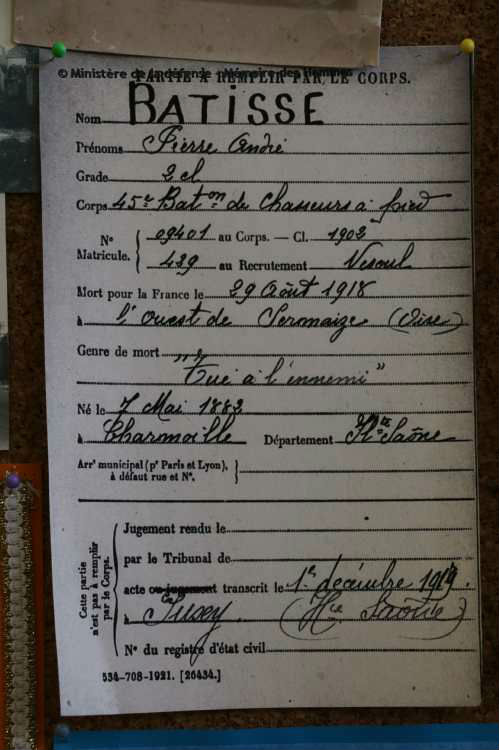 © Ministère de la défense - Mémoire des Hommes
PARTIE À REMPLIR PAR LE CORPS.
Nom BATISSE
Prénoms Pierre André
Grade 2 cl
Corps 45e Baton de Chasseurs à pied
No Matricule. { 09401 au Corps. — Cl. 1902
429 au Recrutement Vesoul
Mort pour la France le 29 Août 1918
à l'ouest de Sermaize (Oise)
Genre de mort
"Tué à l'ennemi"
Né le 7 Mai 1882
à Charmoille Département Hte Saône
Arrt municipal (pr Paris et Lyon), à défaut rue et No. }
Cette partie n'est pas à remplir par le Corps.
Jugement rendu le
par le Tribunal de
acte ou jugement transcrit le 1er décembre 1919.
à Jussey. (Hte Saône)
No du registre d'état civil
534-708-1921. [26434.]